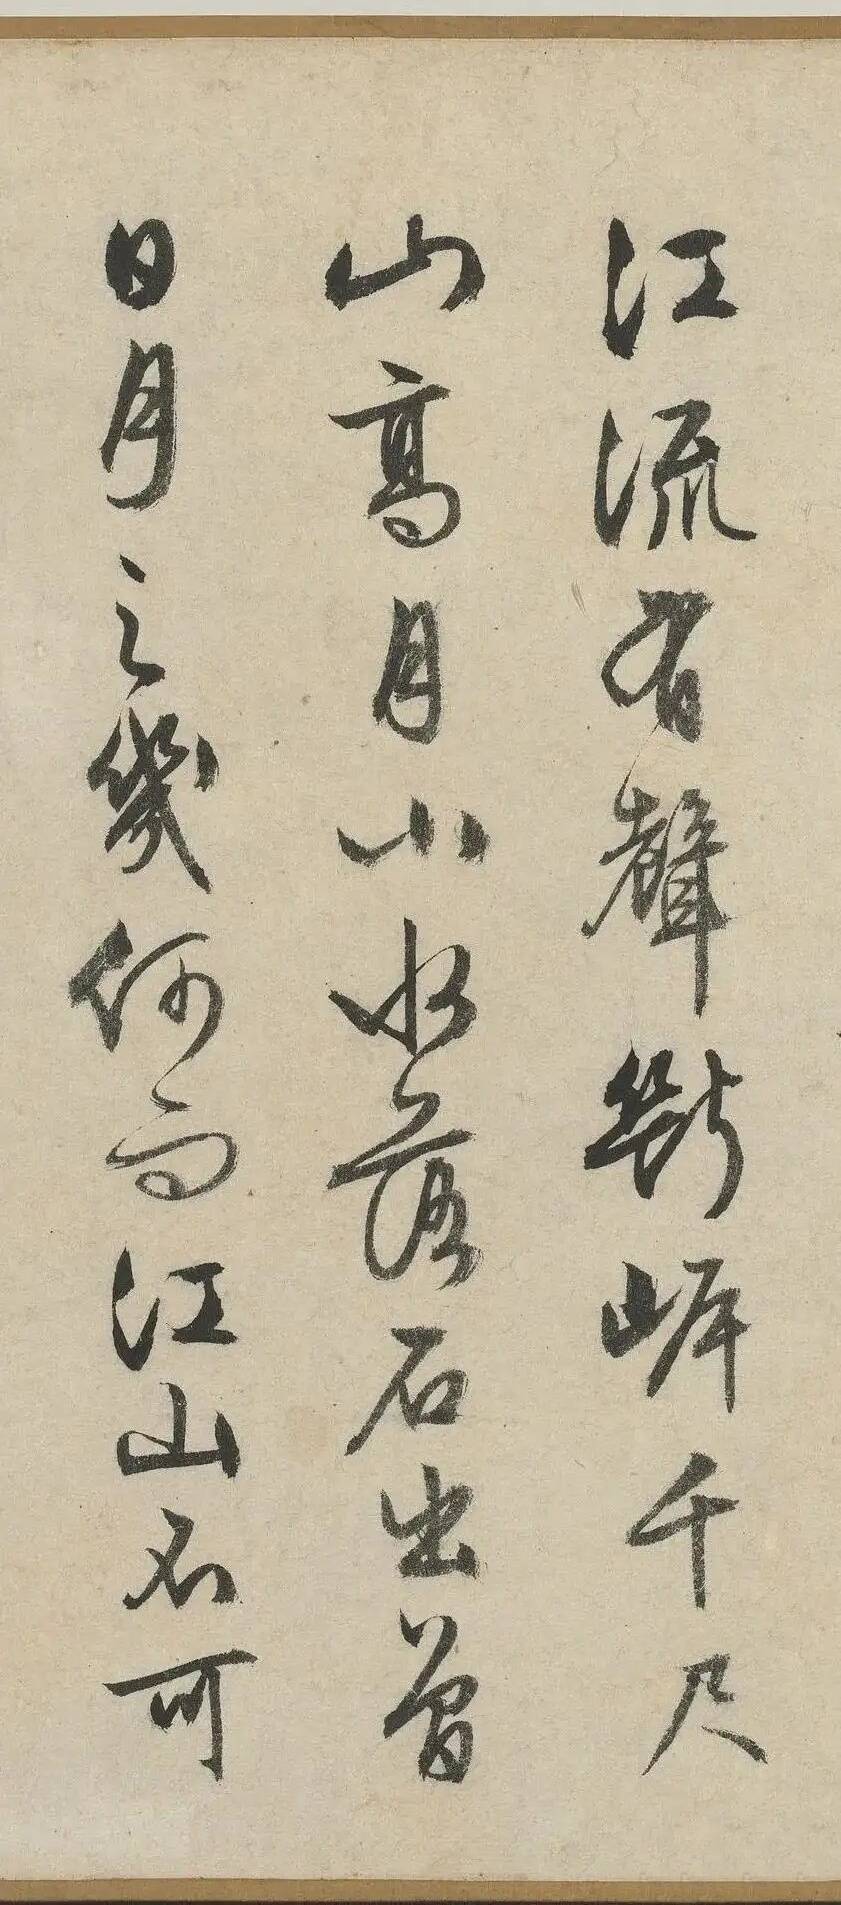 江流有聲斷岸千尺
山高月小水落石出曾
日月之幾何而江山不可